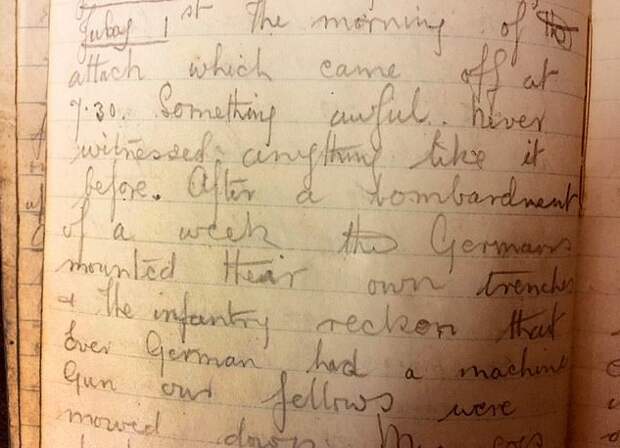 July 1st The morning of the
attack which came off at
7.30. Something awful. Never
witnessed anything like it
before. After a bombardment
of a week the Germans
mounted their own trenches
+ the infantry reckon that
Ever German had a machine
Gun our fellows were
mowed down. My eyes